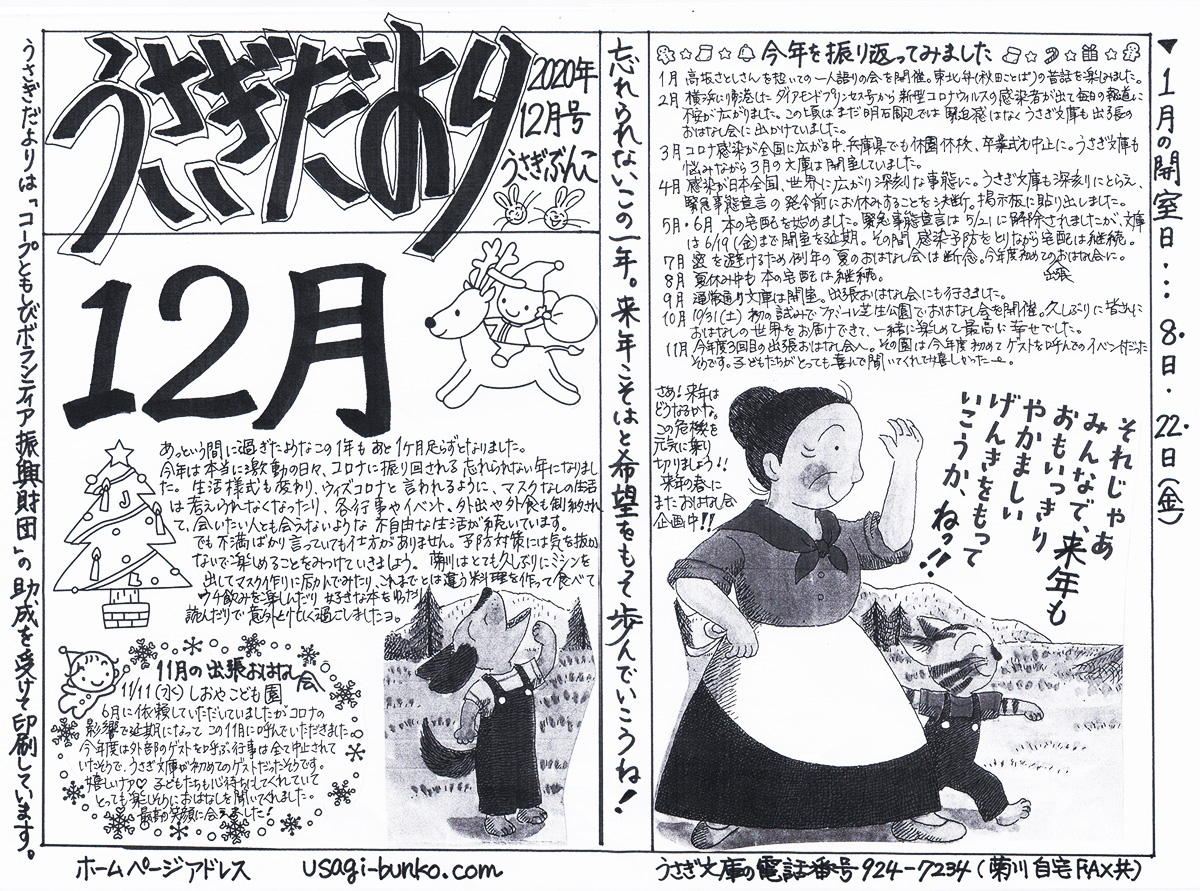 うさぎだより
2020年
12月号
うさぎぶんこ
12月
あっという間に過ぎたようなこの1年もあと1ケ月足らずとなりました。
今年は本当に激動の日々、コロナに振り回される忘れられない年になりまし
た。生活様式も変わり、ウィズコロナと言われるように、マスクなしの生活
は考えられなくなったり、各行事やイベント、外出や外食も制約され
て、会いたい人とも会えないような不自由な生活が続いています。
でも不満ばかり言っていても仕方がありません。予防対策には気を抜か
ないで楽しめることをみつけていきましょう。菊川はとても久しぶりにミシンを
出してマスク作りに励んでみたり、これまでとは違う料理を作って食べて
ウチ飲みを楽しんだり 好きな本をゆったり
読んだりで意外と忙しく過ごしましたヨ。
11月の出張おはなし会
11/11(水)しおやこども園
6月に依頼していただいていましたがコロナの
影響で延期になってこの11月に呼んでいただきました
今年度は外部のゲストを呼ぶ行事は全て中止されて
いたそうで、うさぎ文庫が初めてのゲストだったそうです。
嬉しいナァ♡ 子どもたちも心待ちにしてくれていて
とっても楽しそうにおはなしを聞いてくれました。
最高の笑顔に会えました!
うさぎだよりは「コープともしびボランティア振興財団」の助成を受けて印刷しています。
忘れられないこの一年。来年こそはと希望をもって歩んでいこうね!
今年を振り返ってみました
1月 高坂さとしさんを招いての一人語りの会を開催。東北弁(秋田ことば)の昔話を楽しみました。
2月 横浜に帰港したダイアモンドプリンセス号から新型コロナウィルスの感染者が出て毎日の報道に
不安が広がりました。この頃はまだ明石周辺では緊迫感はなくうさぎ文庫も出張の
おはなし会に出かけていました。
3月 コロナ感染が全国に広がる中、兵庫県でも休園休校、卒業式も中止に。うさぎ文庫も
悩みながら3月の文庫は開室していました。
4月 感染が日本全国、世界に広がり深刻な事態に。うさぎ文庫も深刻にとらえ、
緊急事態宣言の発令前にお休みすることを決断。掲示板に貼り出しました。
5月・6月 本の宅配を始めました。緊急事態宣言は5/21に解除されましたが、文庫
は6/19(金)まで開室を延期。その間感染予防をとりながら宅配は継続。
7月 密を避けるため例年の夏のおはなし会は断念。今年度初めての出張おはなし会に。
8月 夏休み中も本の宅配は継続。
9月 通常通り文庫は開室。出張おはなし会にも行きました。
10月 10/31(土)初の試みでファミール芝生公園でおはなし会を開催。久しぶりに皆さんに
おはなしの世界をお届けできて、一緒に楽しめて最高に幸せでした。
11月 今年度3回目の出張おはなし会へ。その園は今年度初めてゲストを呼んでのイベントだった
そうです。子どもたちがとっても喜んで聞いてくれて嬉しかったー。
さあ!来年は
どうなるかな。
この危機を
元気に乗り
切りましょう!!
来年の春に
またおはなし会
企画中!!
それじゃあ
みんなで、来年も
おもいっきり
やかましい
げんきをもって
いこうか、ねっ!!
▼1月の開室日…8日・22日(金)
ホームページアドレス usagi-bunko.com
うさぎ文庫の電話番号 924-7234(菊川自宅FAX共)